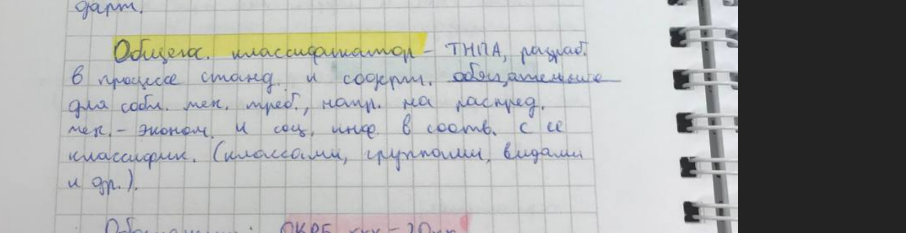 дарт.
Общегос. классификатор – ТНПА, разраб.
в процессе станд. и содерж. обязательные
для собл. тех. треб., напр. на распред.
тех.-эконом. и соц. инф. в соотв. с ее
классифик. (классами, группами, видами
и др.).
ОКРБ